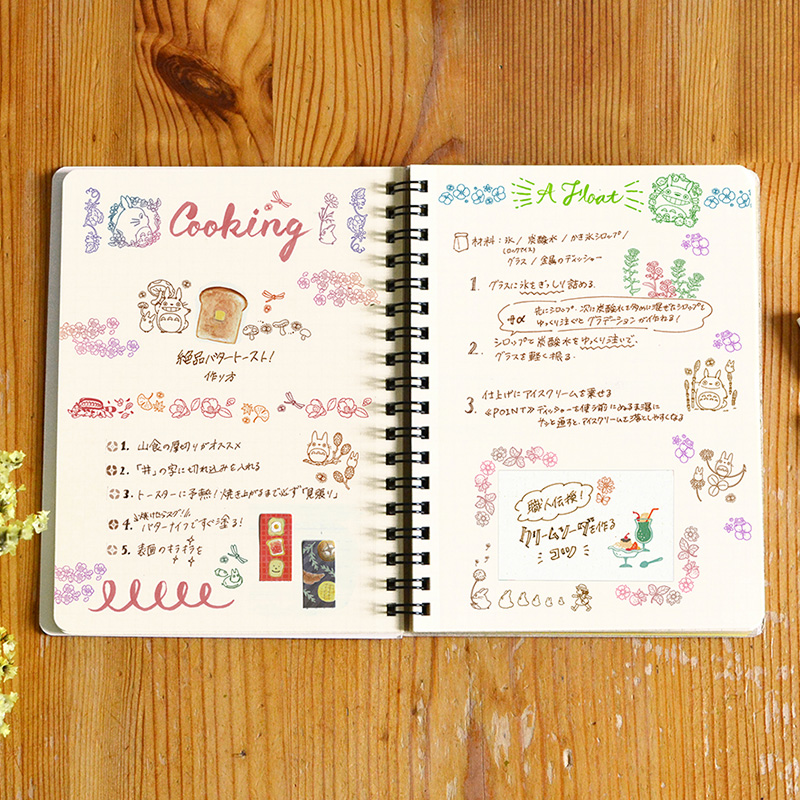 Cooking
絶品バタートースト!
作り方
1. 山食の厚切りがオススメ
2. 「井」の字に切れ込みを入れる
3. トースターに予熱!焼き上がるまで必ず「見張り」
4. 焼けたらスグに
バターナイフですぐ塗る!
5. 表面のキラキラを
A Float
材料:氷/炭酸水/かき氷シロップ/
(ロックアイス)
グラス/金属のディッシャー
1. グラスに氷をぎっしり詰める
+α 先にシロップ・次に炭酸水を多めに混ぜたシロップを
ゆっくり注ぐとグラデーションが作れる!
2. シロップと炭酸水をゆっくり注いで、
グラスを軽く振る
3. 仕上げにアイスクリームを乗せる
≪POINT≫ディッシャーを使う前にぬるま湯に
サッと通すと、アイスクリームを落としやすくなる
職人伝授!
クリームソーダを作る
コツ